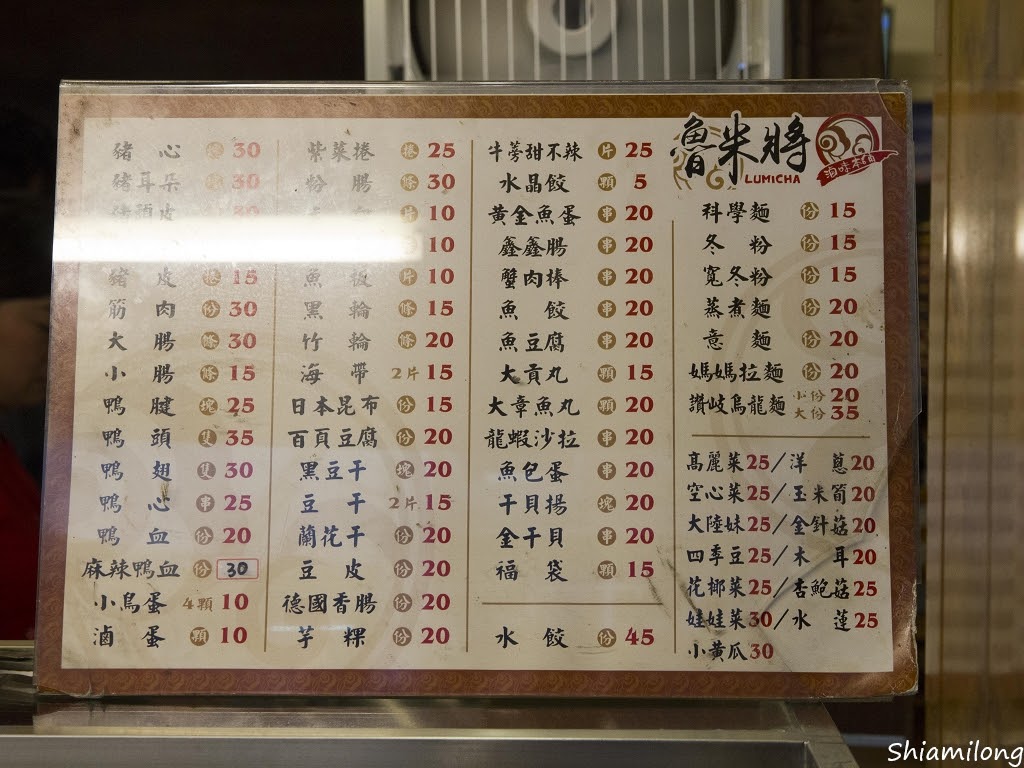 魯米將
LUMICHA
滷味本舖
豬心 30
豬耳朵 30
豬頭皮 30
豬皮 15
筋肉 份 30
大腸 條 30
小腸 條 15
鴨腱 塊 25
鴨頭 隻 35
鴨翅 隻 30
鴨心 串 25
鴨血 份 20
麻辣鴨血 份 30
小鳥蛋 4顆 10
滷蛋 顆 10
紫菜捲 捲 25
粉腸 條 30
片 10
10
魚板 片 10
黑輪 條 15
竹輪 條 20
海帶 2片 15
日本昆布 份 15
百頁豆腐 份 20
黑豆干 塊 20
豆干 2片 15
蘭花干 份 20
豆皮 份 20
德國香腸 份 20
芋粿 份 20
牛蒡甜不辣 片 25
水晶餃 顆 5
黃金魚蛋 串 20
鑫鑫腸 串 20
蟹肉棒 串 20
魚餃 串 20
魚豆腐 串 20
大貢丸 顆 15
大章魚丸 顆 20
龍蝦沙拉 串 20
魚包蛋 串 20
干貝揚 塊 20
金干貝 串 20
福袋 顆 15
水餃 份 45
科學麵 份 15
冬粉 份 15
寬冬粉 份 15
蒸煮麵 份 20
意麵 份 20
媽媽拉麵 份 20
讚岐烏龍麵 小份 20
大份 35
高麗菜25/洋蔥20
空心菜25/玉米筍20
大陸妹25/金針菇20
四季豆25/木耳20
花椰菜25/杏鮑菇25
娃娃菜30/水蓮25
小黃瓜30
Shiamilong